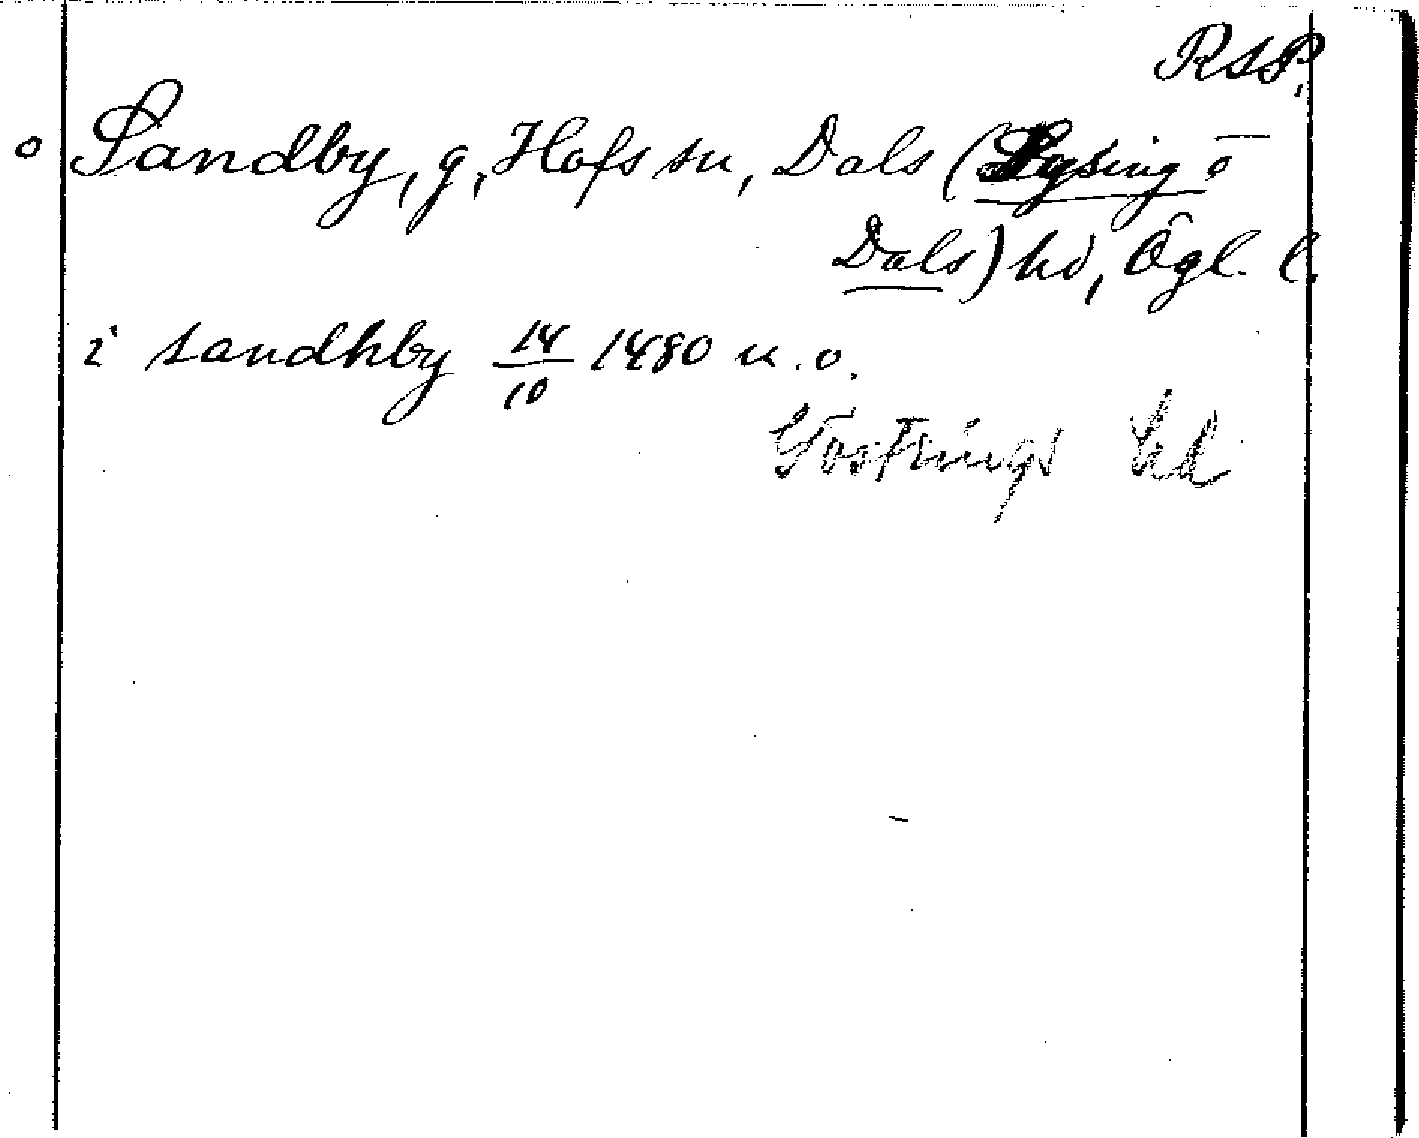 RAP.
o Sandby, g, Hofs sn, Dals (Lysing o
Dals) hd, Ögl. l.
i sandhby 14/10 1480 u. o.
Göstrings hd